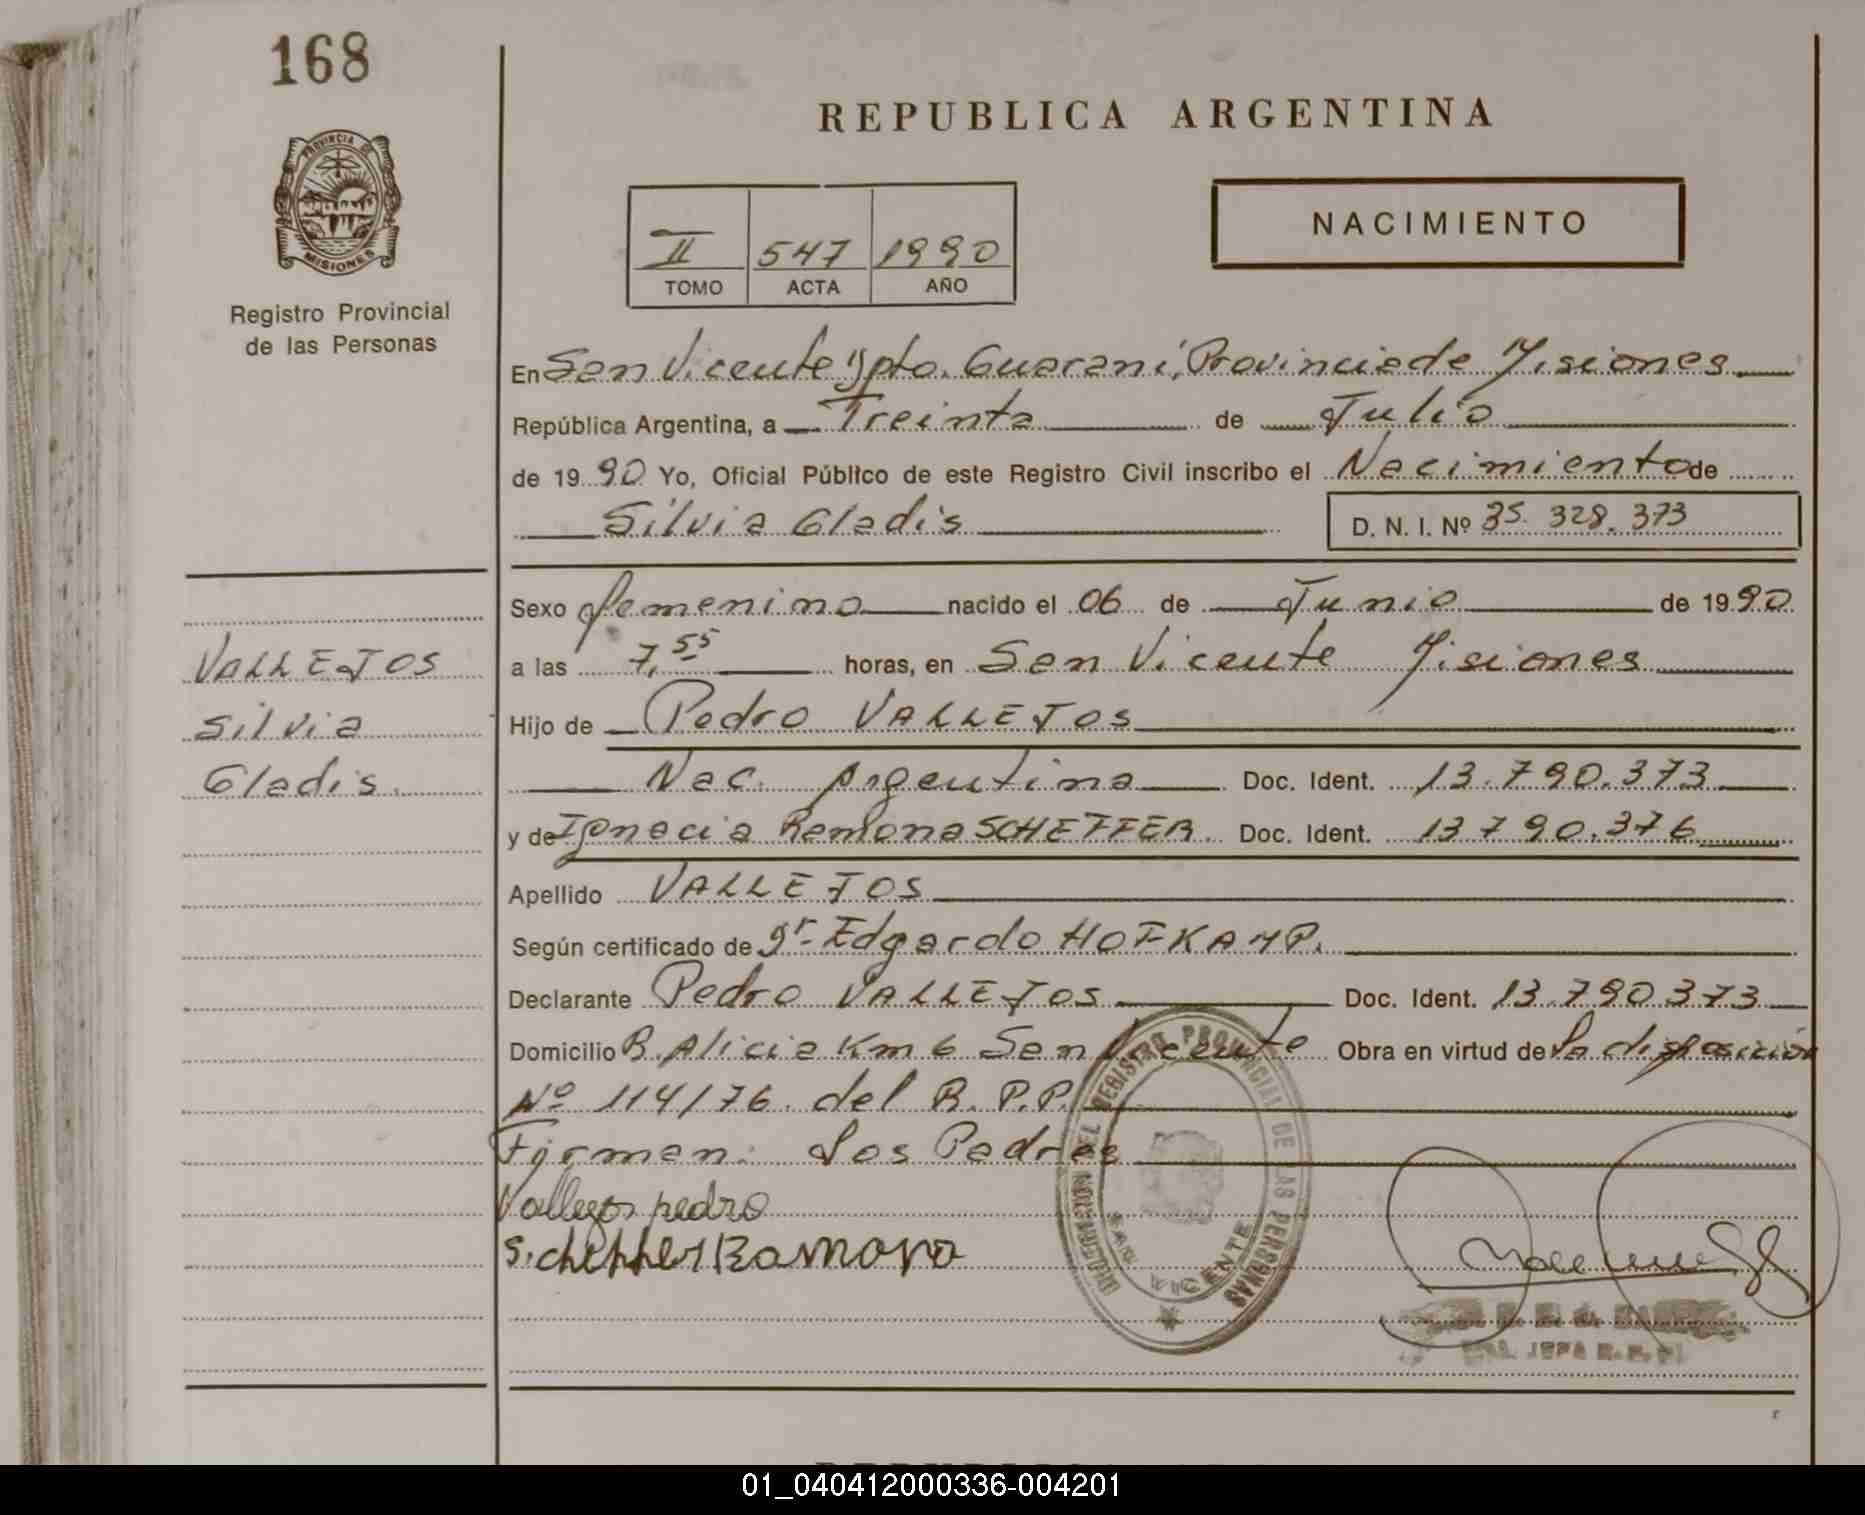 168
PROVINCIA DE
MISIONES
Registro Provincial
de las Personas
REPUBLICA ARGENTINA
NACIMIENTO
II 547 1990
TOMO ACTA AÑO
En San Vicente Dpto. Guaraní, Provincia de Misiones
República Argentina, a Treinta de Julio
de 1990 Yo, Oficial Público de este Registro Civil inscribo el Nacimiento de
Silvia Gladis D. N. I. Nº 35.328.373
Sexo femenino nacido el 06 de Junio de 1990
a las 7,55 horas, en San Vicente Misiones
Hijo de Pedro VALLEJOS
Nac. Argentina Doc. Ident. 13.790.373
y de Ignacia Ramona SCHEFFER Doc. Ident. 13790.376
Apellido VALLEJOS
Según certificado de Dr. Edgardo HOFKAMP.
Declarante Pedro VALLEJOS Doc. Ident. 13.790373
Domicilio B. Alicia Km 6 San Vicente Obra en virtud de la disposición
Nº 114/76. del R.P.P.
Firman: Los Padres
Vallejos pedro
Scheffer Ramona
VALLEJOS
Silvia
Gladis.
REGISTRO PROVINCIAL DE LAS PERSONAS
VICENTE
JEFA
01_040412000336-004201